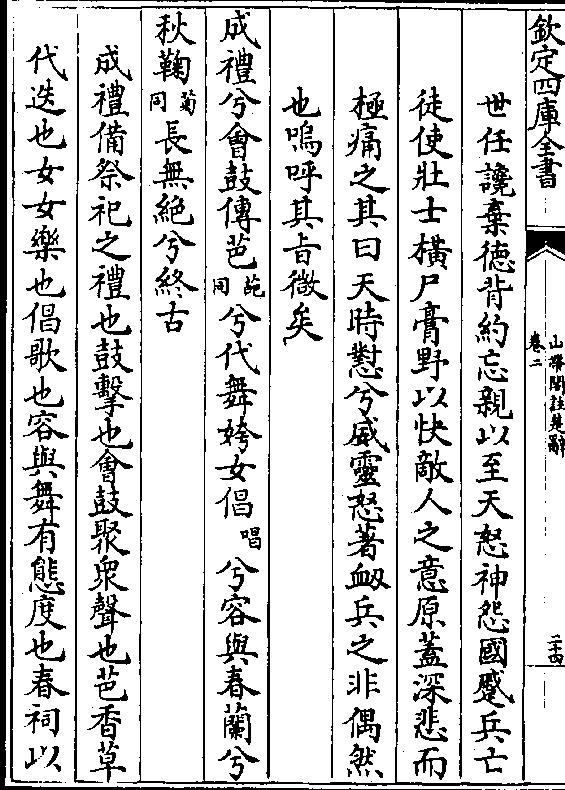 欽定四庫全書
山帶閣註楚辭
卷二
二十四
世任讒棄德背約忘親以至天怒神怨國蹙兵亡
徒使壯士橫尸膏野以快敵人之意原蓋深悲而
極痛之其曰天時懟兮威靈怒著衂兵之非偶然
也嗚呼其旨微矣
成禮兮會鼓傳芭葩同兮代舞姱女倡唱兮容與春蘭兮
秋鞠菊同長無絕兮終古
成禮備祭祀之禮也鼓擊也會鼓聚衆聲也芭香草
代迭也女女樂也倡歌也容與舞有態度也春祠以